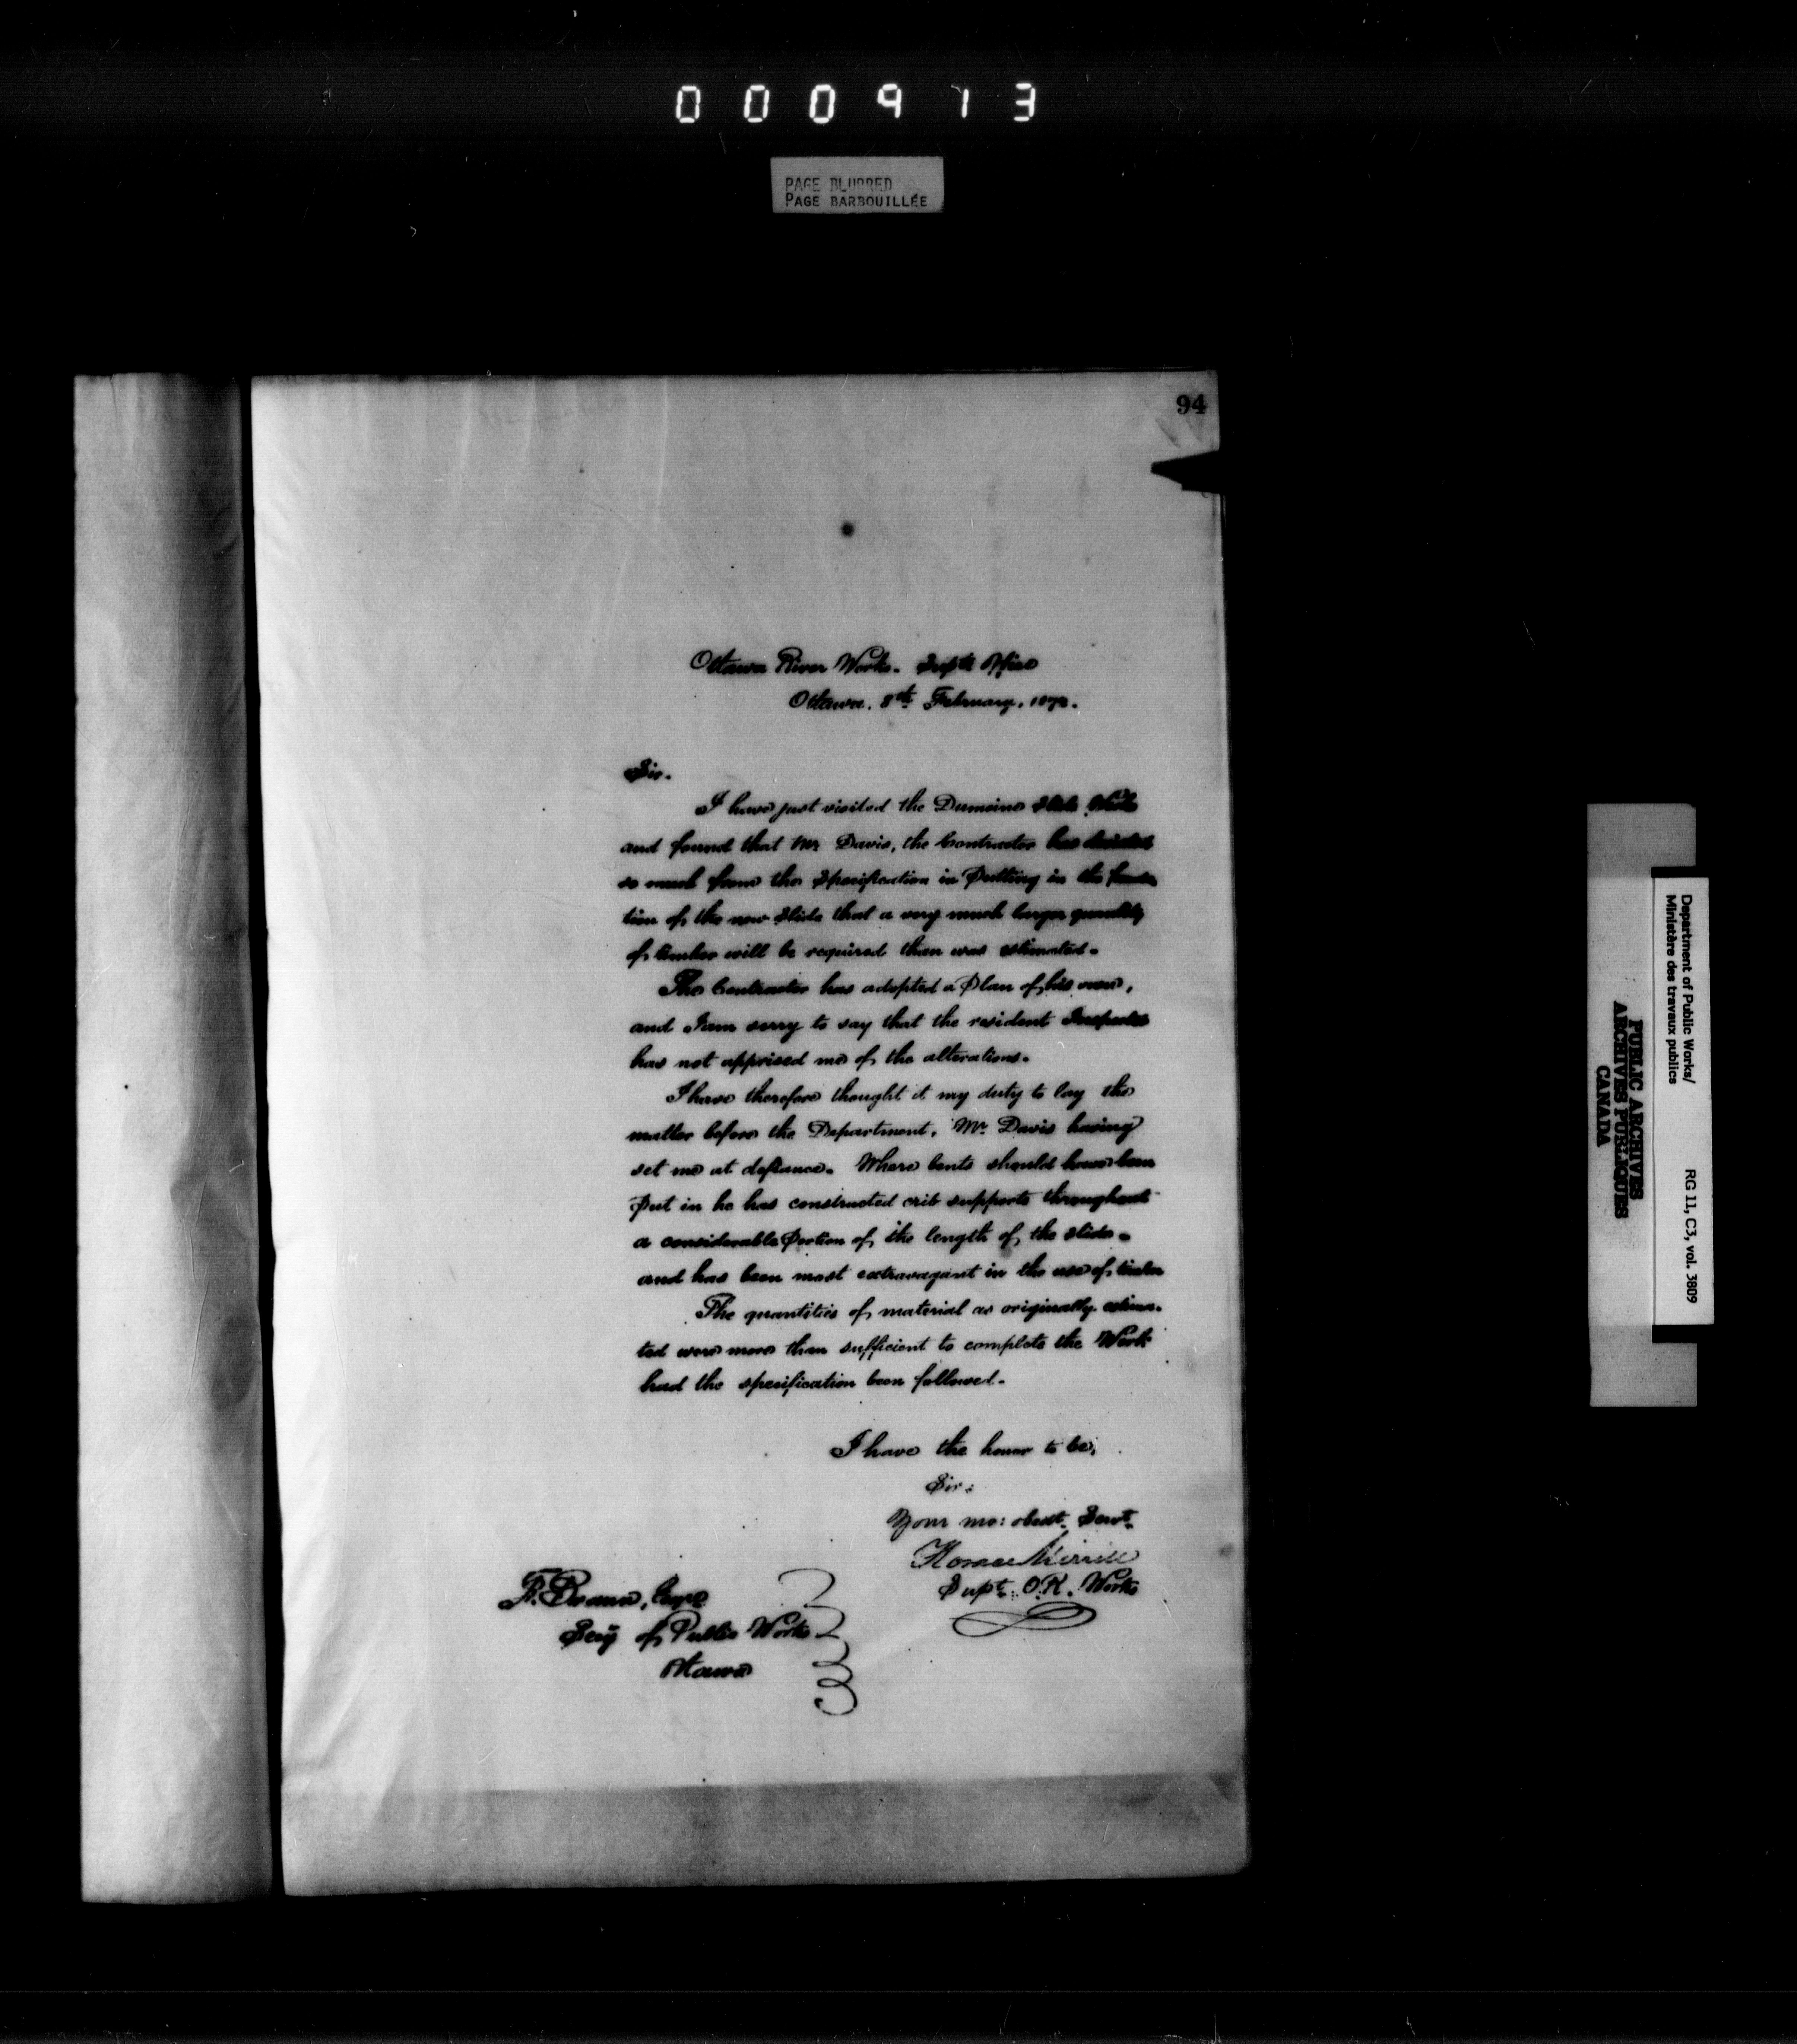 000913
PAGE BLURRED
PAGE BARBOUILLÉE
94
Ottawa River Works. Supts Office
Ottawa. 8th February, 187
Sir.
I have just visited the Dumoine Slide Works
and found that Mr Davis, the Contractor has deviated
so much from the Specification in Putting in the founda
tion of the new Slide that a very much larger quantity
of timber will be required than was estimated.
The Contractor has adopted a Plan of his own,
and I am sorry to say that the resident Inspector
has not apprised me of the alterations.
I have therefore thought it my duty to lay the
matter before the Department, Mr. Davis having
set me at defiance. Where bents should have been
Put in he has constructed crib supports throughout
a considerable Portion of the length of the slide.
and has been most extravagant in the use of timber
The quantities of material as originally estima-
ted were more than sufficient to complete the Work
had the specification been followed.
I have the honor to be,
Sir.
Your mo: obedt. Servt.
Horace Merrill
Supt. O.R. Works
F. Braun, Esqre
Secy of Public Works
Ottawa
Department of Public Works/
Ministère des travaux publics
RG 11, C3, vol. 3809
PUBLIC ARCHIVES
ARCHIVES PUBLIQUES
CANADA